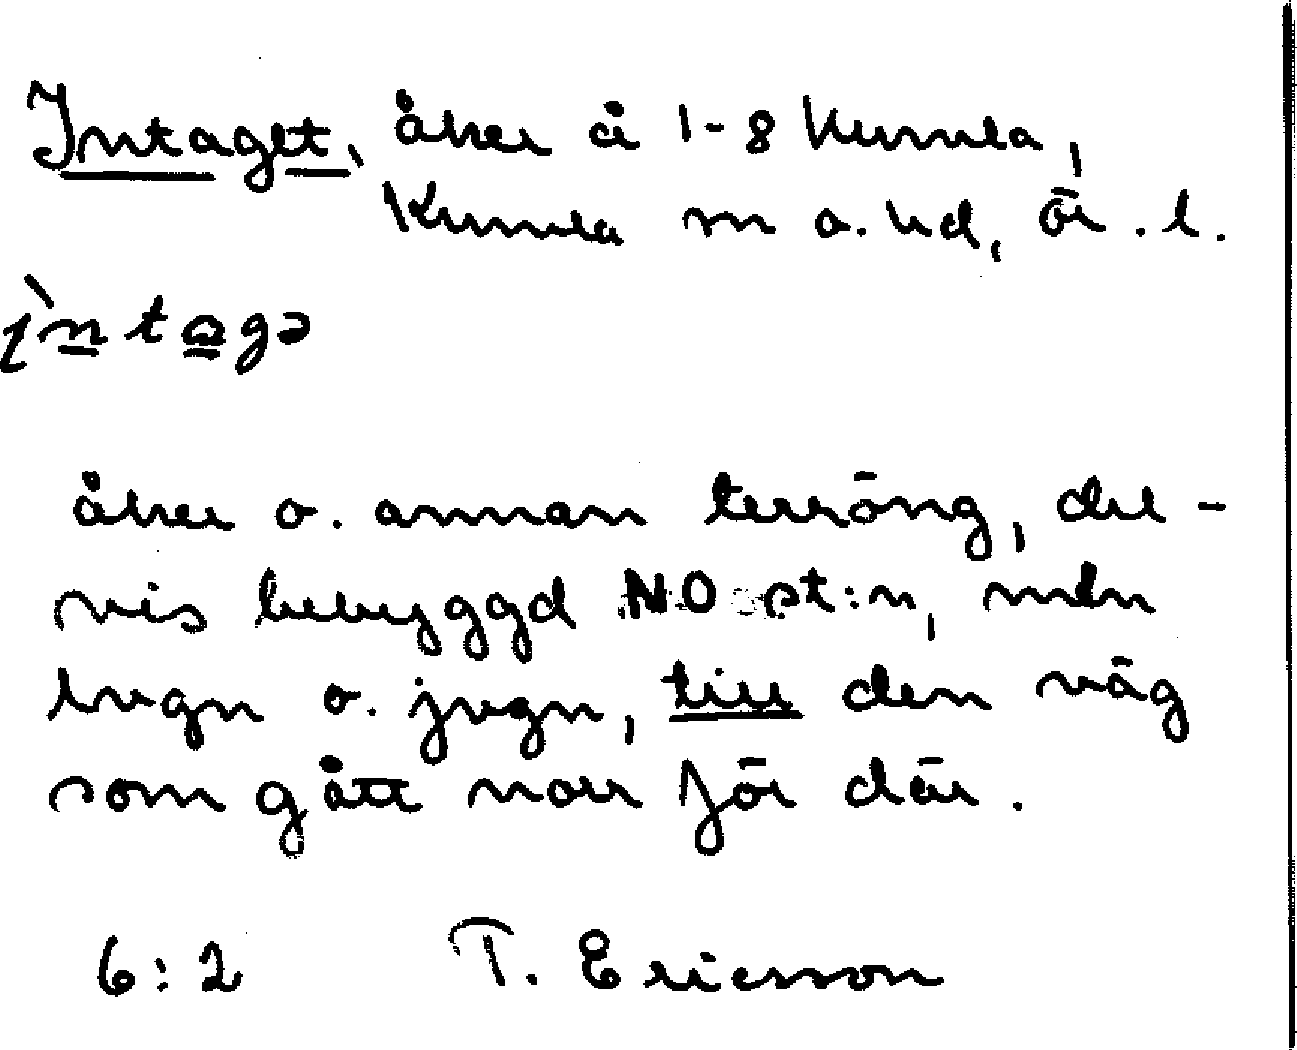 Intaget, åker å 1-8 Kumla,
Kumla sn o. hd, ör. l.
ìntagə
åker o. annan terräng, del-
vis bebyggd NO st:n, mln
lvgn o. jvgn, till den väg
som gått norr för där.
6:2 T. Ericsson